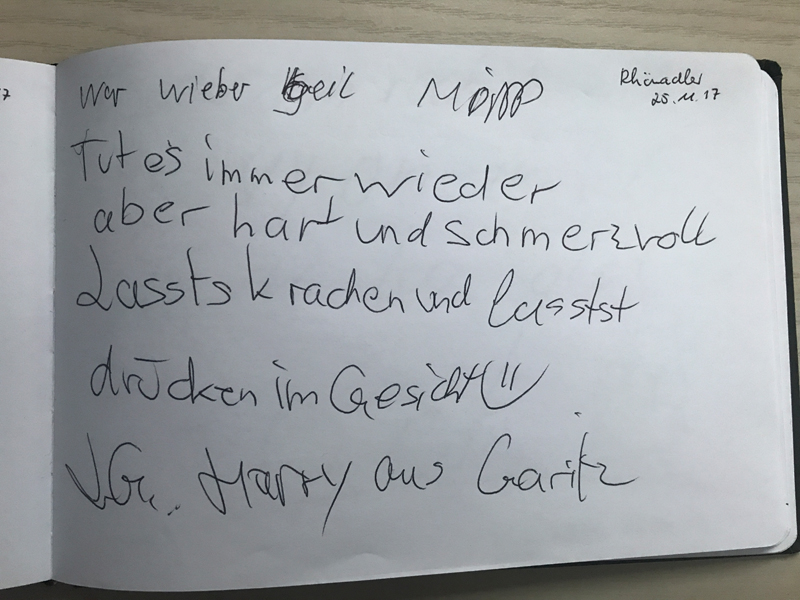 7
war wieber geil Möpp
Rhönadler
25.11.17
Tut es immer wieder
aber hart und schmerzvoll
Lassts krachen und lasstst
drücken im Gesicht
V.G. Harry aus Garitz